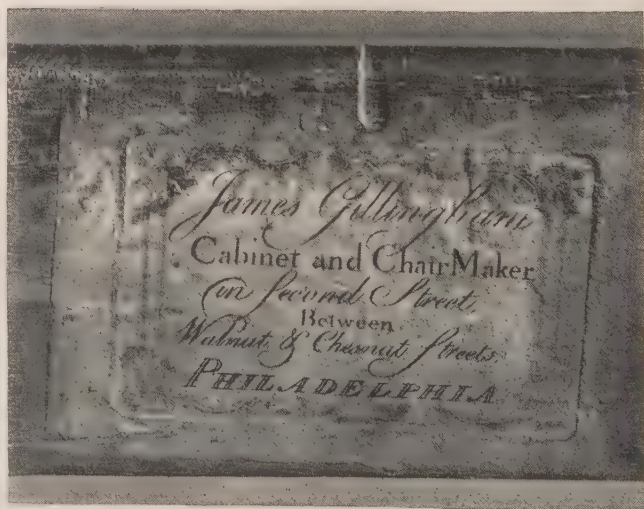 James Gillingham
Cabinet and Chair Maker
in Second Street
Between
Walnut & Chesnut Streets
PHILADELPHIA